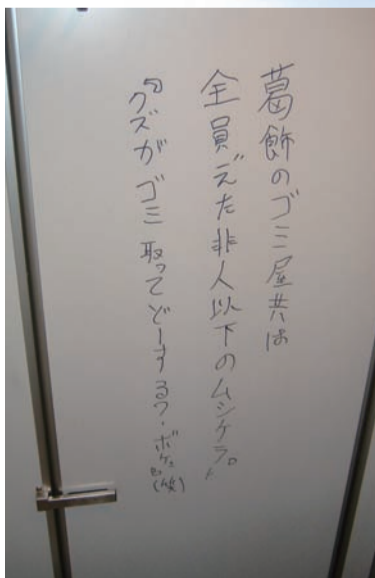 葛飾のゴミ屋共は
全員えた非人以下のムシケラ。
『クズがゴミ取ってどーする？・ボケ』(笑)